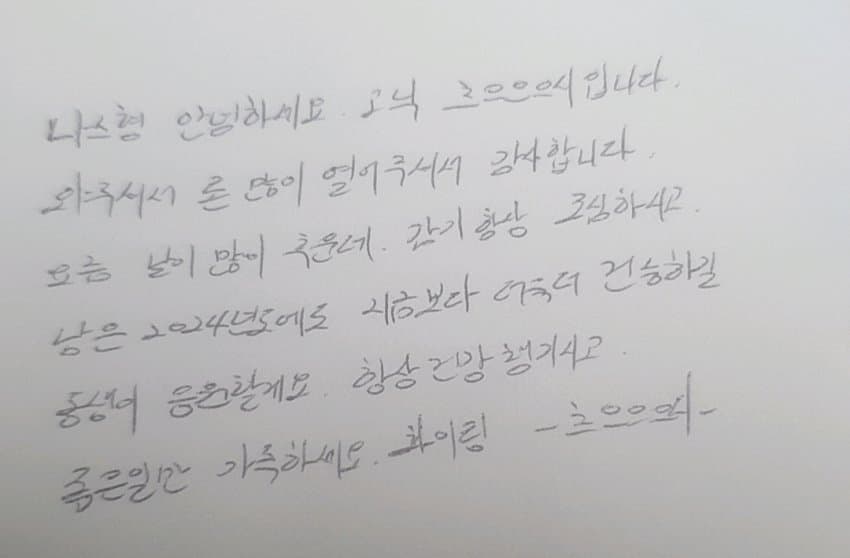 니스형 안녕하세요. 고닉 초으으으의입니다.
와주셔서 론 많이 열어주셔서 감사합니다.
요즘 날이 많이 추운데. 감기 항상 조심하시고.
남은 2024년도에도 지금보다 더욱더 건승하길
동생이 응원할게요. 항상 건강 챙기시고.
좋은일만 가득하세요. 화이팅 -초으으으의-